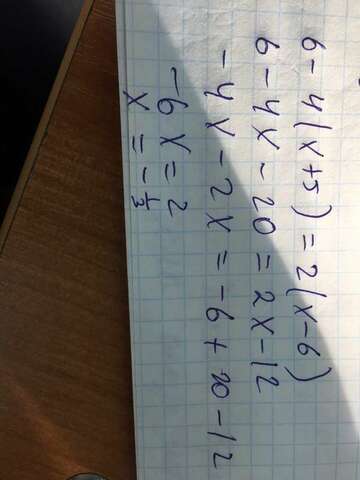 6-4(x+5)=2(x-6)
6-4x-20=2x-12
-4x-2x=-6+20-12
-6x=2
x=-1/3